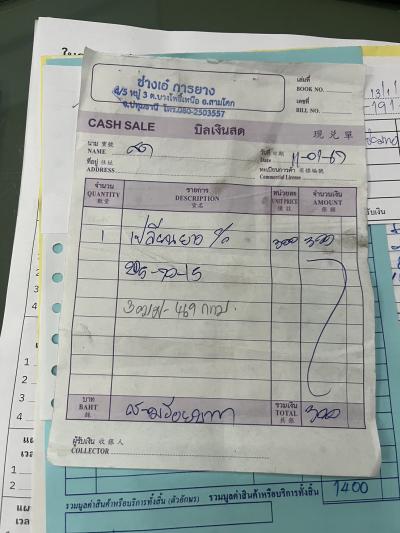 ช่างเอ๋ การยาง
4/5 หมู่ 3 ต.บางโพธิ์เหนือ อ.สามโคก
จ.ปทุมธานี โทร.080-2503557
เล่มที่
BOOK NO.
เลขที่
BILL NO.
CASH SALE บิลเงินสด 現兌單
นาม 寳號
NAME สด
วันที่ 日期
Date 11-01-67
ที่อยู่ 住址
ADDRESS
ทะเบียนการค้า 商標編號
Commercial License
จำนวน รายการ หน่วยละ จำนวนเงิน
QUANTITY DESCRIPTION UNIT PRICE AMOUNT
數量 貨名 價註 銀碼
1 เปลี่ยนยาง 300 300
205-70-15
3ฒฆ-469 กทม.
บาท รวมเงิน
BAHT สามร้อยบาท TOTAL 300
銖 共銀
ผู้รับเงิน 收銀人
COLLECTOR
1400
รวมมูลค่าสินค้าหรือบริการทั้งสิ้น (ตัวอักษร) รวมมูลค่าสินค้าหรือบริการทั้งสิ้น